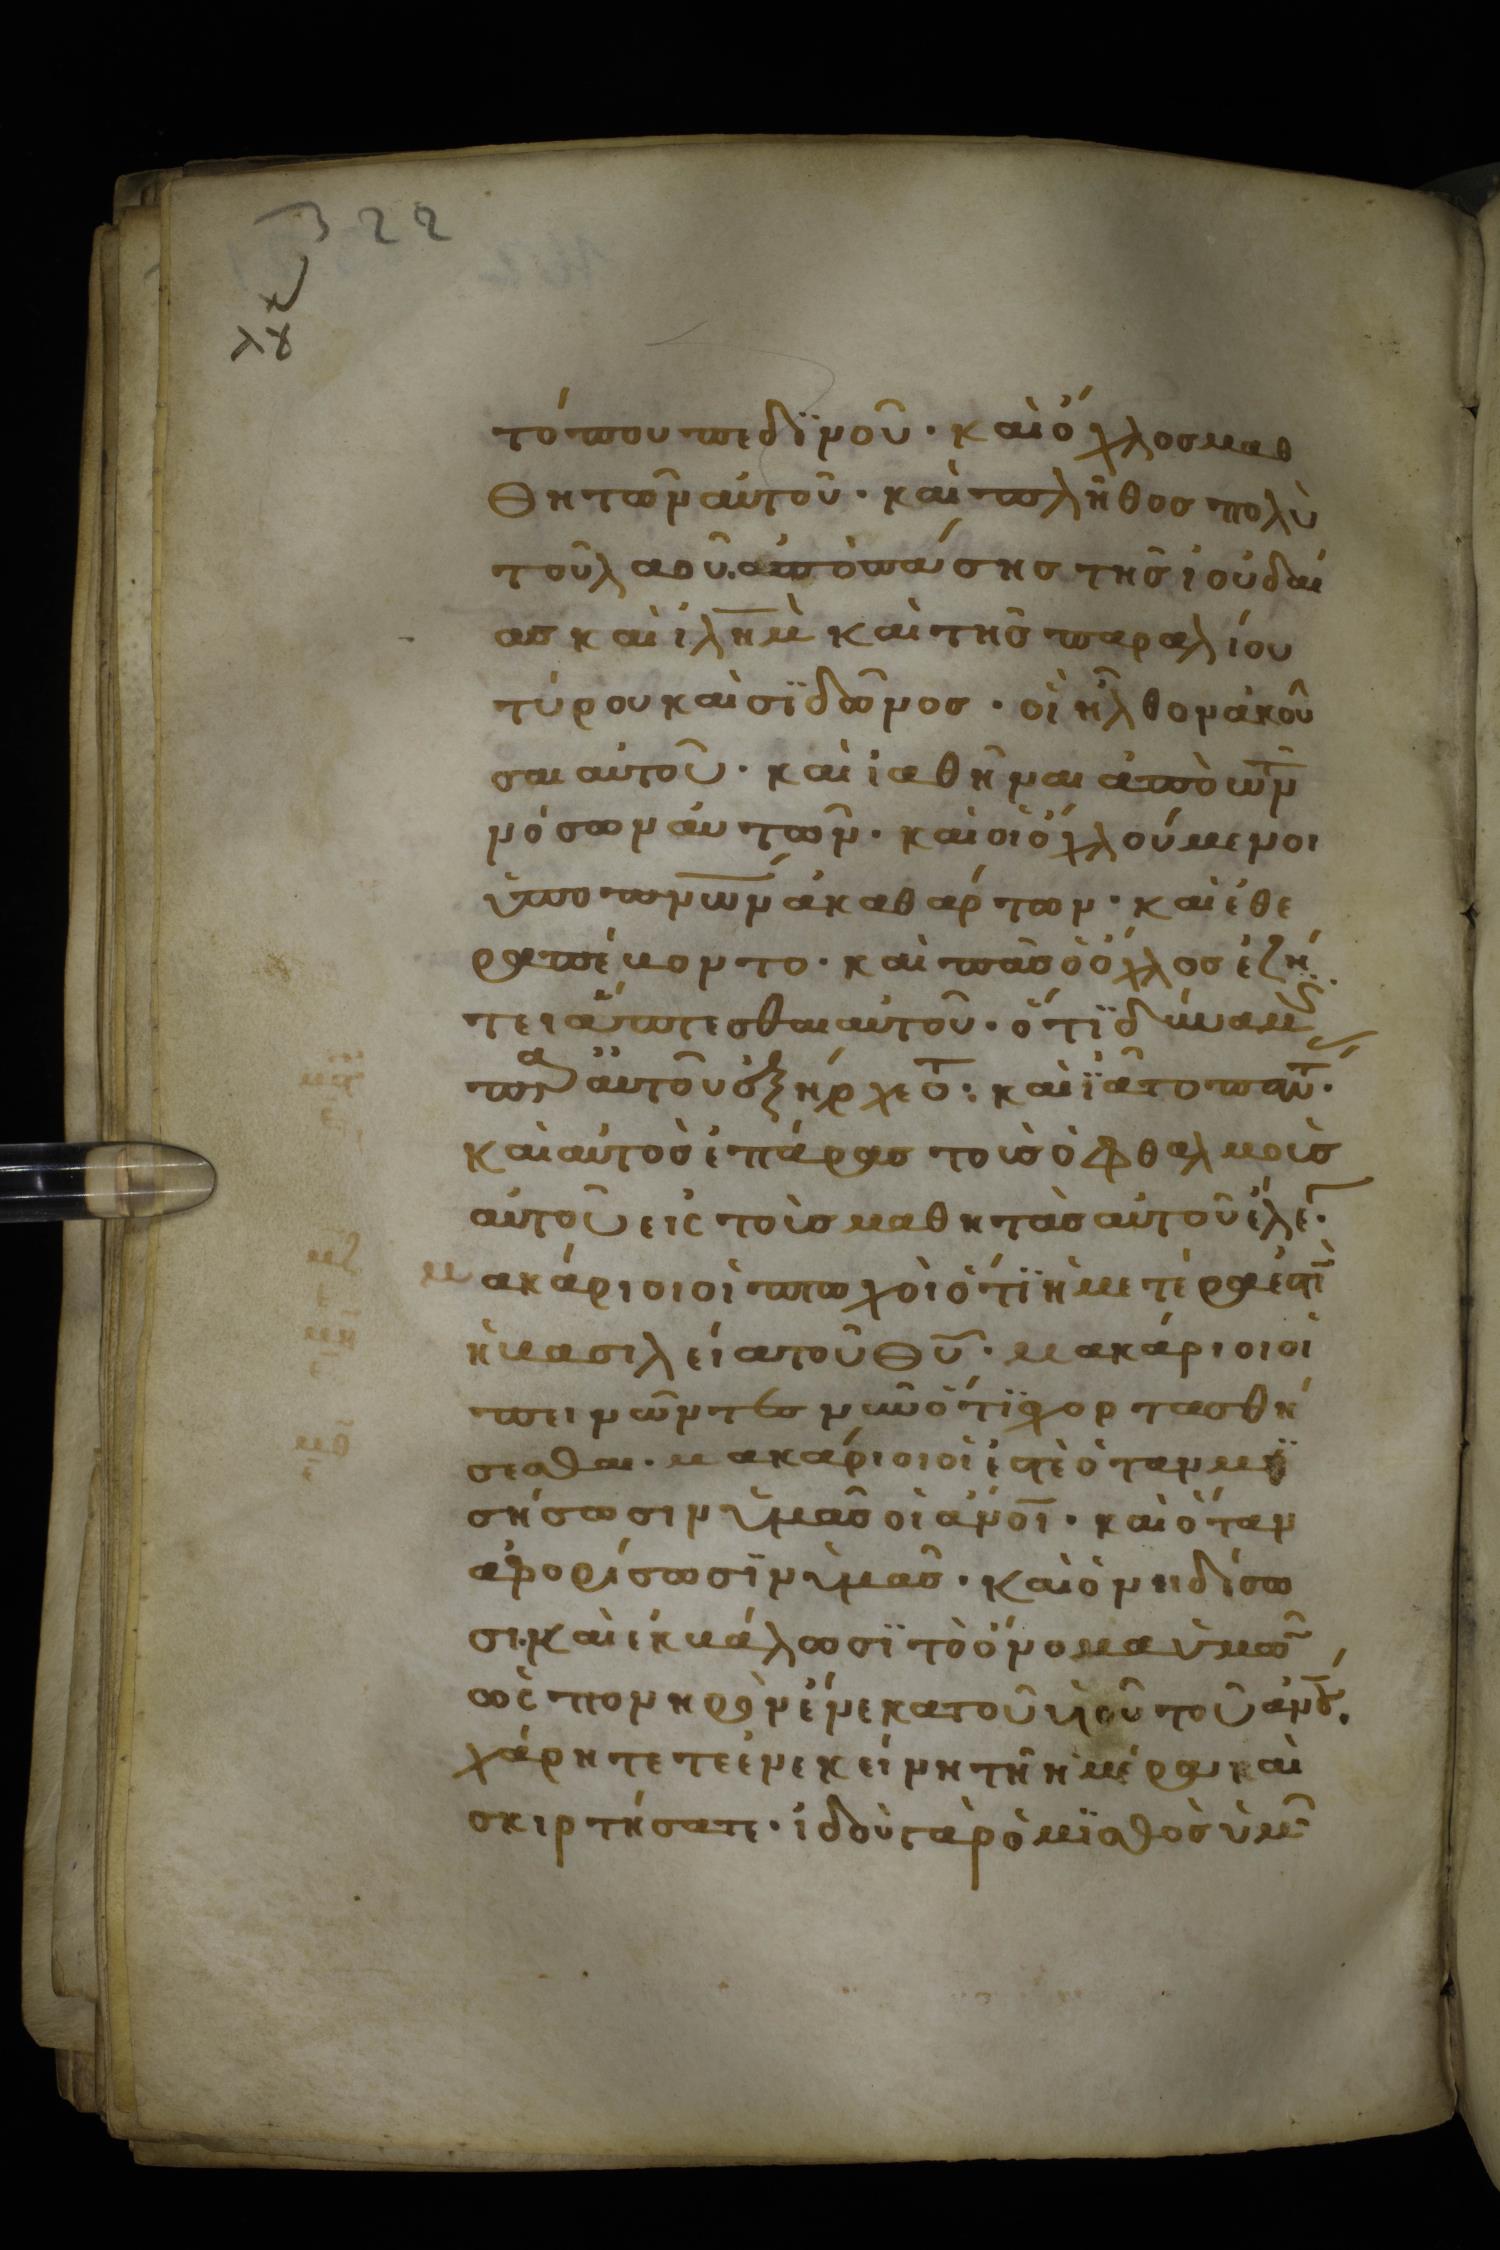 322
λγ
τόπου πεδϊνοῦ · καὶ ὄχλος μαθ
θητῶν αὐτοῦ · καὶ πλῆθος πολὺ
τοῦ λαοῦ. ἀπὸ πάσης τῆς ἰουδαί
ας καὶ ἰλῆμ καὶ τῆς παραλίου
τύρου καὶ σϊδῶνος · οἳ ἦλθον ἀκοῦ
σαι αὐτοῦ · καὶ ἰαθῆναι ἀπὸ τῶν
νόσων αὐτῶν · καὶ οἱ ὀχλούμενοι
ὑπο πνων ἀκαθάρτων · καὶ ἐθε
ραπέυοντο · καὶ πᾶς ὁ ὄχλος ἐζή
τει ἅπτεσθαι αὐτοῦ · ὅτϊ δύναμις
παρ αὐτοῦ ἐξήρχετο : καὶ ϊᾶτο παντ ·
καὶ αὐτὸς ἐπάρας τοὺς ὀφθαλμοὺς
αὐτοῦ εἰς τοὺς μαθητὰς αὐτοῦ ἔλεγ ·
μακάριοι οἱ πτωχοὶ ὅτϊ ἡμετέρα ἐστὶ
ἡ βασιλεία τοῦ θυ · μακάριοι οἱ
πεινῶντες νῦν ὅτϊ χορτασθή
σεσθαι · μακάριοι οἱ ἐστὲ ὅταν μϊ
σήσωσιν ὑμᾶς οἱ ἀνοι · καὶ ὅταν
ἀφορίσωσϊν ὑμᾶς · καὶ ὀνηδίσω
σι. καὶ ἐκβάλωσϊ τὸ ὄνομα ὑμῶν
ὡς πονηρὸν ἕνεκα τοῦ υἱοῦ τοῦ ἀνου.
χάρητε τε ἐν ἐκείνη τῆ ἡμέρα καὶ
σκιρτήσατε · ἰδοὺ γὰρ ὁ μϊσθὸς ὑμ